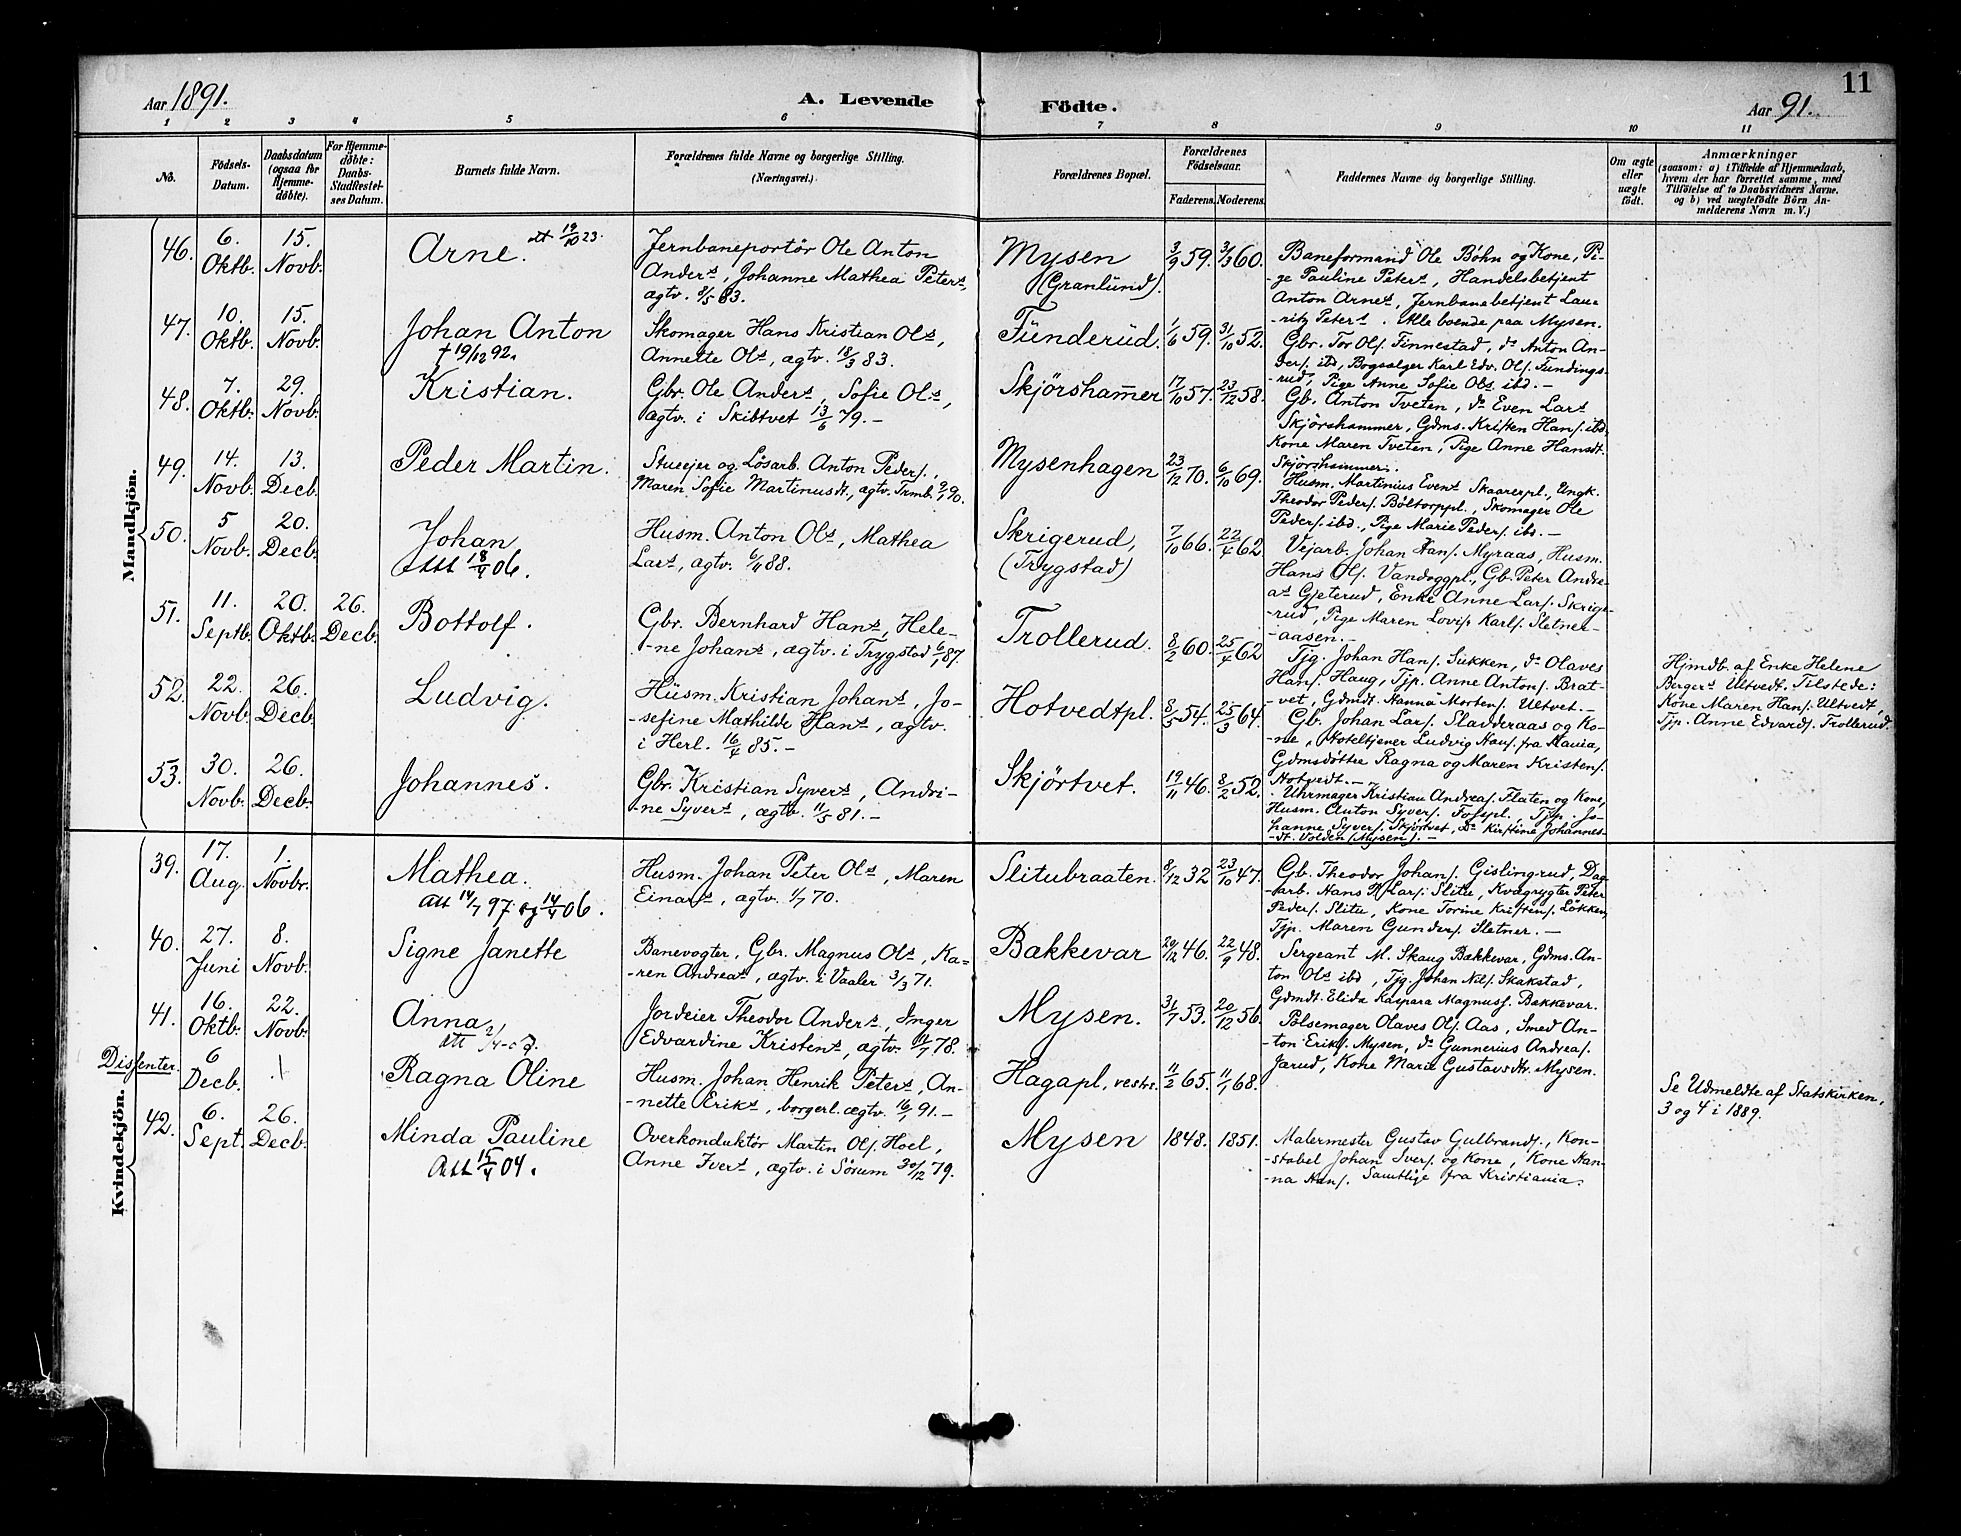 11
Aar 1891.
A. Levende Födte.
Aar 91.
1 2 3 4 5 6 7 8 9 10 11
No.
Födsels-Datum.
Daabsdatum (ogsaa for Hjemmedøbte).
For Hjemmedøbte: Daabs-Stadfæstelses Datum.
Barnets fulde Navn.
Forældrenes fulde Navne og borgerlige Stilling.
(Næringsvei.)
Forældrenes Bopæl.
Forældrenes Födselsaar.
Faderens. Moderens.
Faddernes Navne og borgerlige Stilling.
Om ægte eller uægte födt.
Anmærkninger
(saasom: a) i Tilfælde af Hjemmedaab,
hvem der har forrettet samme, med
Tilföielse af to Daabsvidners Navne.
og b) ved uægtefödte Börn An-
melderens Navn m. V.)
Mandkjön.
46. 6. Oktb. 15. Novb.
Arne. att 19/10 23.
Jernbaneportör Ole Anton
Anders, Johanne Mathea Peters,
ægtv. 8/5 83.
Mysen
(Granlund).
3/9 59. 3/3 60.
Baneformand Ole Böhn og Kone, Pi-
-ge Pauline Peters, Handelsbetjent
Anton Arnes, Jernbanebetjent Lau-
-ritz Peters. Alle boende paa Mysen.
47. 10. Oktb. 15. Novb.
Johan Anton
† 19/12 92.
Skomager Hans Kristian Ols,
Annette Ols, ægtv. 18/3 83.
Tünderüd.
1/6 59. 31/10 52.
Gbr. Tor Ols. Finnestad, do Anton An-
ders. ibd, Bogsælger Karl Edv. Ols. Fundings-
-rud, Pige Anne Sofie Ols. ibd. -
48. 7. Oktb. 29. Novb.
Kristian.
Gbr. Ole Anders, Sofie Ols,
ægtv. i Skibtvet 13/6 79. -
Skjörshammer
17/10 57. 23/12 58.
Gb. Anton Tveten, do Even Lars
Skjörshammer, Gdms. Kristen Hans. ibd,
Kone Maren Tveten, Pige Anne Hansdt.
Skjörshammer.
49. 14. Novb. 13. Decb.
Peder Martin.
Stueejer og Lösarb. Anton Peders.,
Maren Sofie Martinusdt., ægtv. Trmb. 90.
Mysenhagen
23/12 70. 6/10 69.
Husm. Martinius Evens Skaarerpl., Ungk.
Theodor Peders. Böltorppl., Skomager Ole
Peders. ibd., Pige Marie Peders. ibd. -
50. 5 Novb. 20. Decb.
Johan
Att 18/4 06.
Husm. Anton Ols, Mathea
Lars, ægtv. 6/11 88.
Skrigerud,
(Trygstad)
7/10 66. 22/4 62
Vejarb. Johan Hans. Myraas, Husm.
Hans Ols. Vanduggpl., Gb. Peter Andre-
as Gjeterud, Enke Anne Lars. Skrige-
-rud, Pige Maren Lovise Karls. Sletner-
-aasen. -
51. 11. Septb. 20. Oktb. 26. Decb.
Bottolf.
Gbr. Bernhard Hans, Hele-
-ne Johans, ægtv. i Trygstad 6/1 87.
Trollerud.
8/2 60. 25/4 62
Tjg. Johan Hans. Sukken, do Olaves
Hans. Haug, Tjp. Anne Antons. Brat-
-vet, Gdmdt. Hanna Mortens. Ultvet. -
Hjmdb. af Enke Helene
Bergers Ultvedt. Tilstede:
Kone Maren Hans. Ultvedt,
Tjp. Anne Edvards. Trollerud.
52. 22. Novb. 26. Decb.
Ludvig.
Husm. Kristian Johans, Jo-
-sefine Mathilde Hans, ægtv.
i Herl. 16/4 85. -
Hotvedtpl.
8/5 54. 25/3 64.
Gb. Johan Lars. Sladderaas og Ko-
-ne, Hoteltjener Ludvig Hans. fra Xania,
Gdmsdöttre Ragna og Maren Kristens.
Hotvedt. -
53. 30. Novb. 26. Decb.
Johannes.
Gbr. Kristian Syvers, Andri-
-ne Syvers, ægtv. 11/5 81. -
Skjörtvet.
19/11 46. 8/2 52.
Uhrmager Kristian Andreas. Flaten og Kone,
Husm. Anton Syvers. Fosspl., Tjp. Jo-
hanne Syvers. Skjörtvet, Do Kirstine Johannes-
dt. Volden (Mysen). -
Kvindekjön.
39. 17. Aug. 1. Novbr.
Mathea.
Att 14/7 97 og 14/4 06.
Husm. Johan Peter Ols, Maren
Einars, ægtv. 1/7 70.
Slitubraaten.
8/12 32 23/10 47.
Gb. Theodor Johans. Gislingrud, Dag-
-arb. Hans P. Lars. Slitu, Kvægrygter Peter
Peders. Slitu, Kone Torine Kristens. Lökken,
Tjp. Maren Gunders. Sletner. -
40. 27. Juni 8. Novb.
Signe Janette
Banevogter, Gbr. Magnus Ols, Ka-
-ren Andreas, ægtv. i Vaaler 3/3 71.
Bakkevar
20/12 46. 22/9 48.
Sergeant M. Skaug Bækkevar, Gdms. An-
ton Ols ibd, Tjg. Johan Nils. Skakstad,
Gdmdt. Elida Kaspara Magnuss. Bækkevar.
41. 16. Oktb. 22. Novb.
Anna
Jordeier Theodor Anders, Inger
Edvardine Kristens, ægtv. 11/7 78.
Mysen.
31/7 53. 20/12 56.
Pölsemager Olaves Ols. Aas, Smed An-
ton Eriks. Mysen, do Gunnerius Andreas.
Jarud, Kone Marie Gustavsdtr. Mysen.
Dissenter. 6 Decb.
Ragna Oline
Husm. Johan Henrik Peters, An-
-nette Eriks, borgerl. ægtv. 16/1 91. -
Hagapl, vestr.
11/2 65. 11/1 68.
Se Udmeldte af Statskirken,
3 og 4 i 1889.
42. 6. Sept. 26. Decb.
Minda Pauline
Att 15/4 04.
Overkonduktör Martin Ols. Hoel,
Anne Ivers, ægtv. i Sörum 30/12 79.
Mysen
1848. 1851.
Malermester Gustav Gulbrands., Kon-
-stabel Johan Ivers. og Kone, Kone Han-
-na Hans. Samtlige fra Kristiania.